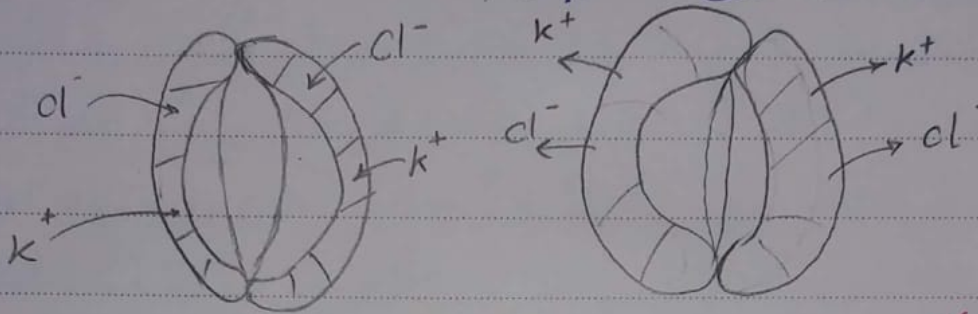 Cl⁻
k⁺
cl⁻
k⁺
k⁺
k⁺
Cl⁻
cl⁻